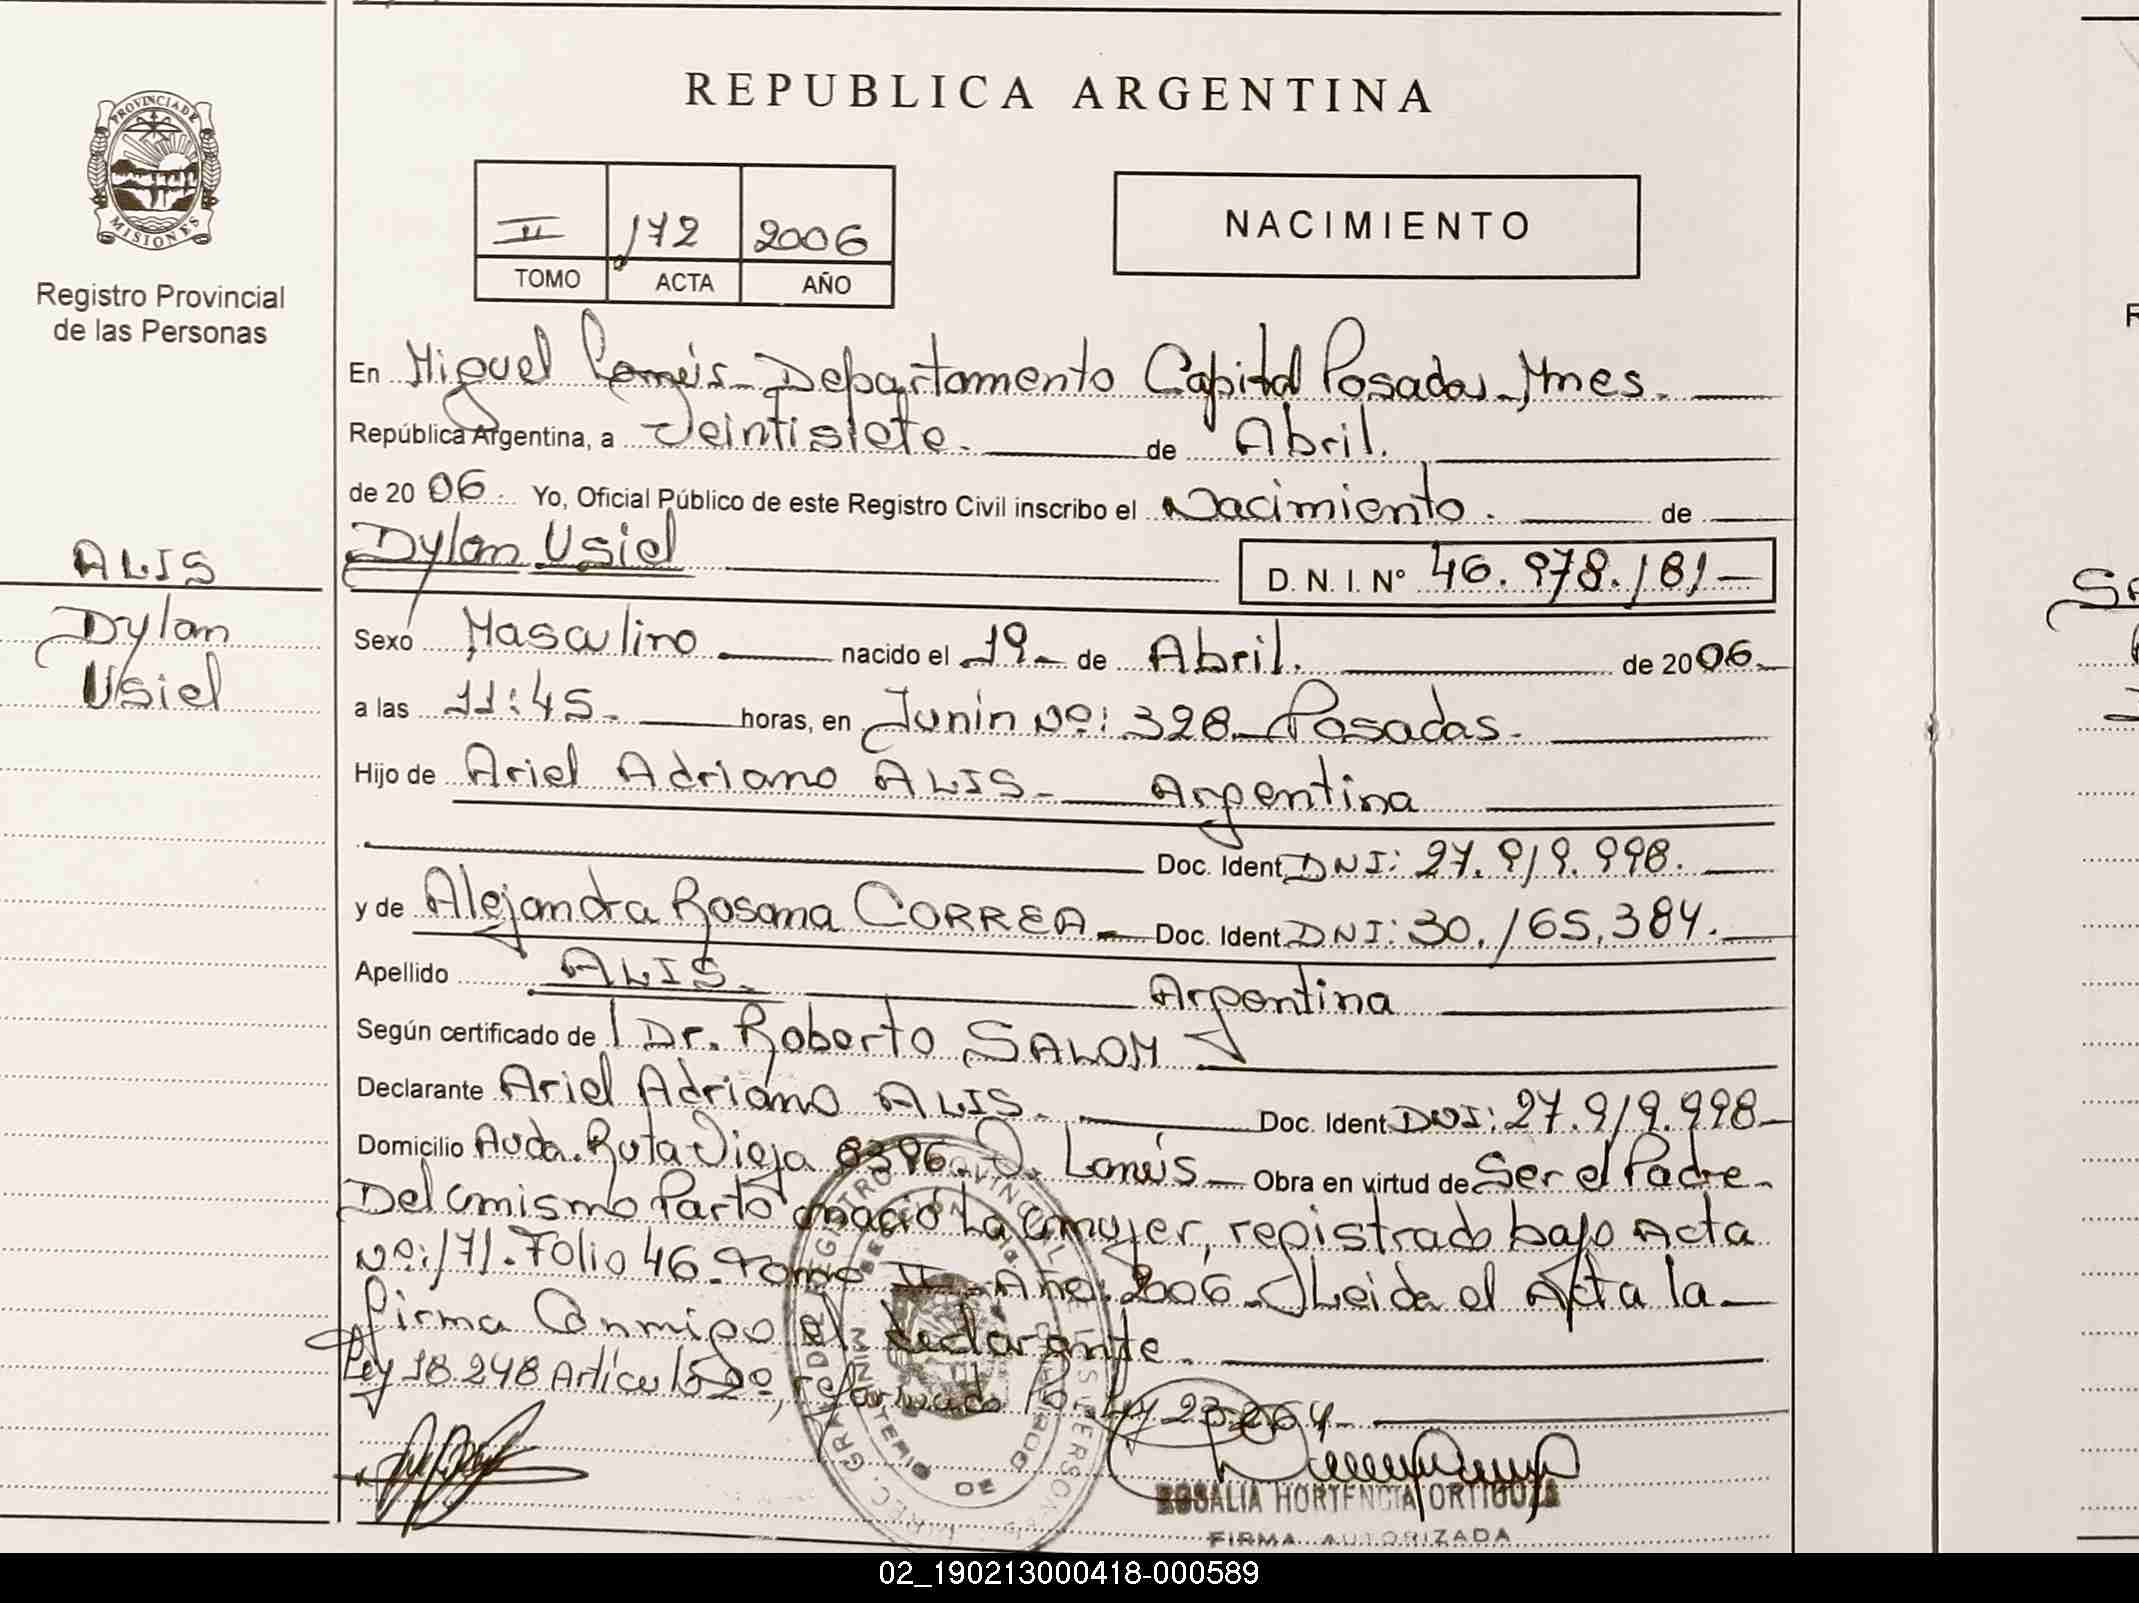 REPUBLICA ARGENTINA
PROVINCIA DE
MISIONES
Registro Provincial
de las Personas
II 172 2006
TOMO ACTA AÑO
NACIMIENTO
En Miguel Lanús - Departamento Capital Posadas - Mnes.
República Argentina, a Veintisiete. de Abril.
de 20 06. Yo, Oficial Público de este Registro Civil inscribo el Nacimiento. de
Dylan Usiel D. N. I. N° 46.978.181-
ALIS
Dylan
Usiel
Sexo Masculino nacido el 19- de Abril. de 20 06.
a las 11:45. horas, en Junin Nº: 328. Posadas.
Hijo de Ariel Adriano ALIS- Argentina
Doc. Ident. DNI: 27.919.998.
y de Alejandra Rosana CORREA- Doc. Ident. DNI: 30.165.384.
Apellido ALIS. Argentina
Según certificado de Dr. Roberto SALOM
Declarante Ariel Adriano ALIS. Doc. Ident. DNI: 27.919.998-
Domicilio Avda. Ruta Vieja 8396. Lanús - Obra en virtud de Ser el Padre-
Del mismo Parto nació La mujer, registrado bajo Acta
Nº: 171. Folio 46. Tomo II - Año: 2006. Leida el Acta la
firma Conmigo el declarante.
Ley 18.248 Artículo 2º, reformado Ley 23.264
ROSALIA HORTENCIA ORTIGOZA
FIRMA AUTORIZADA
02_190213000418-000589